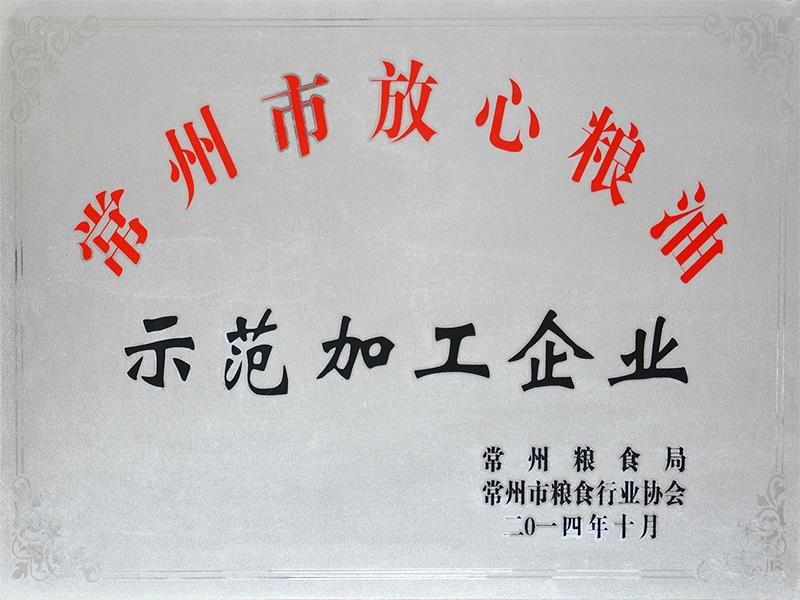 常州市放心粮油
示范加工企业
常州粮食局
常州市粮食行业协会
二0一四年十月